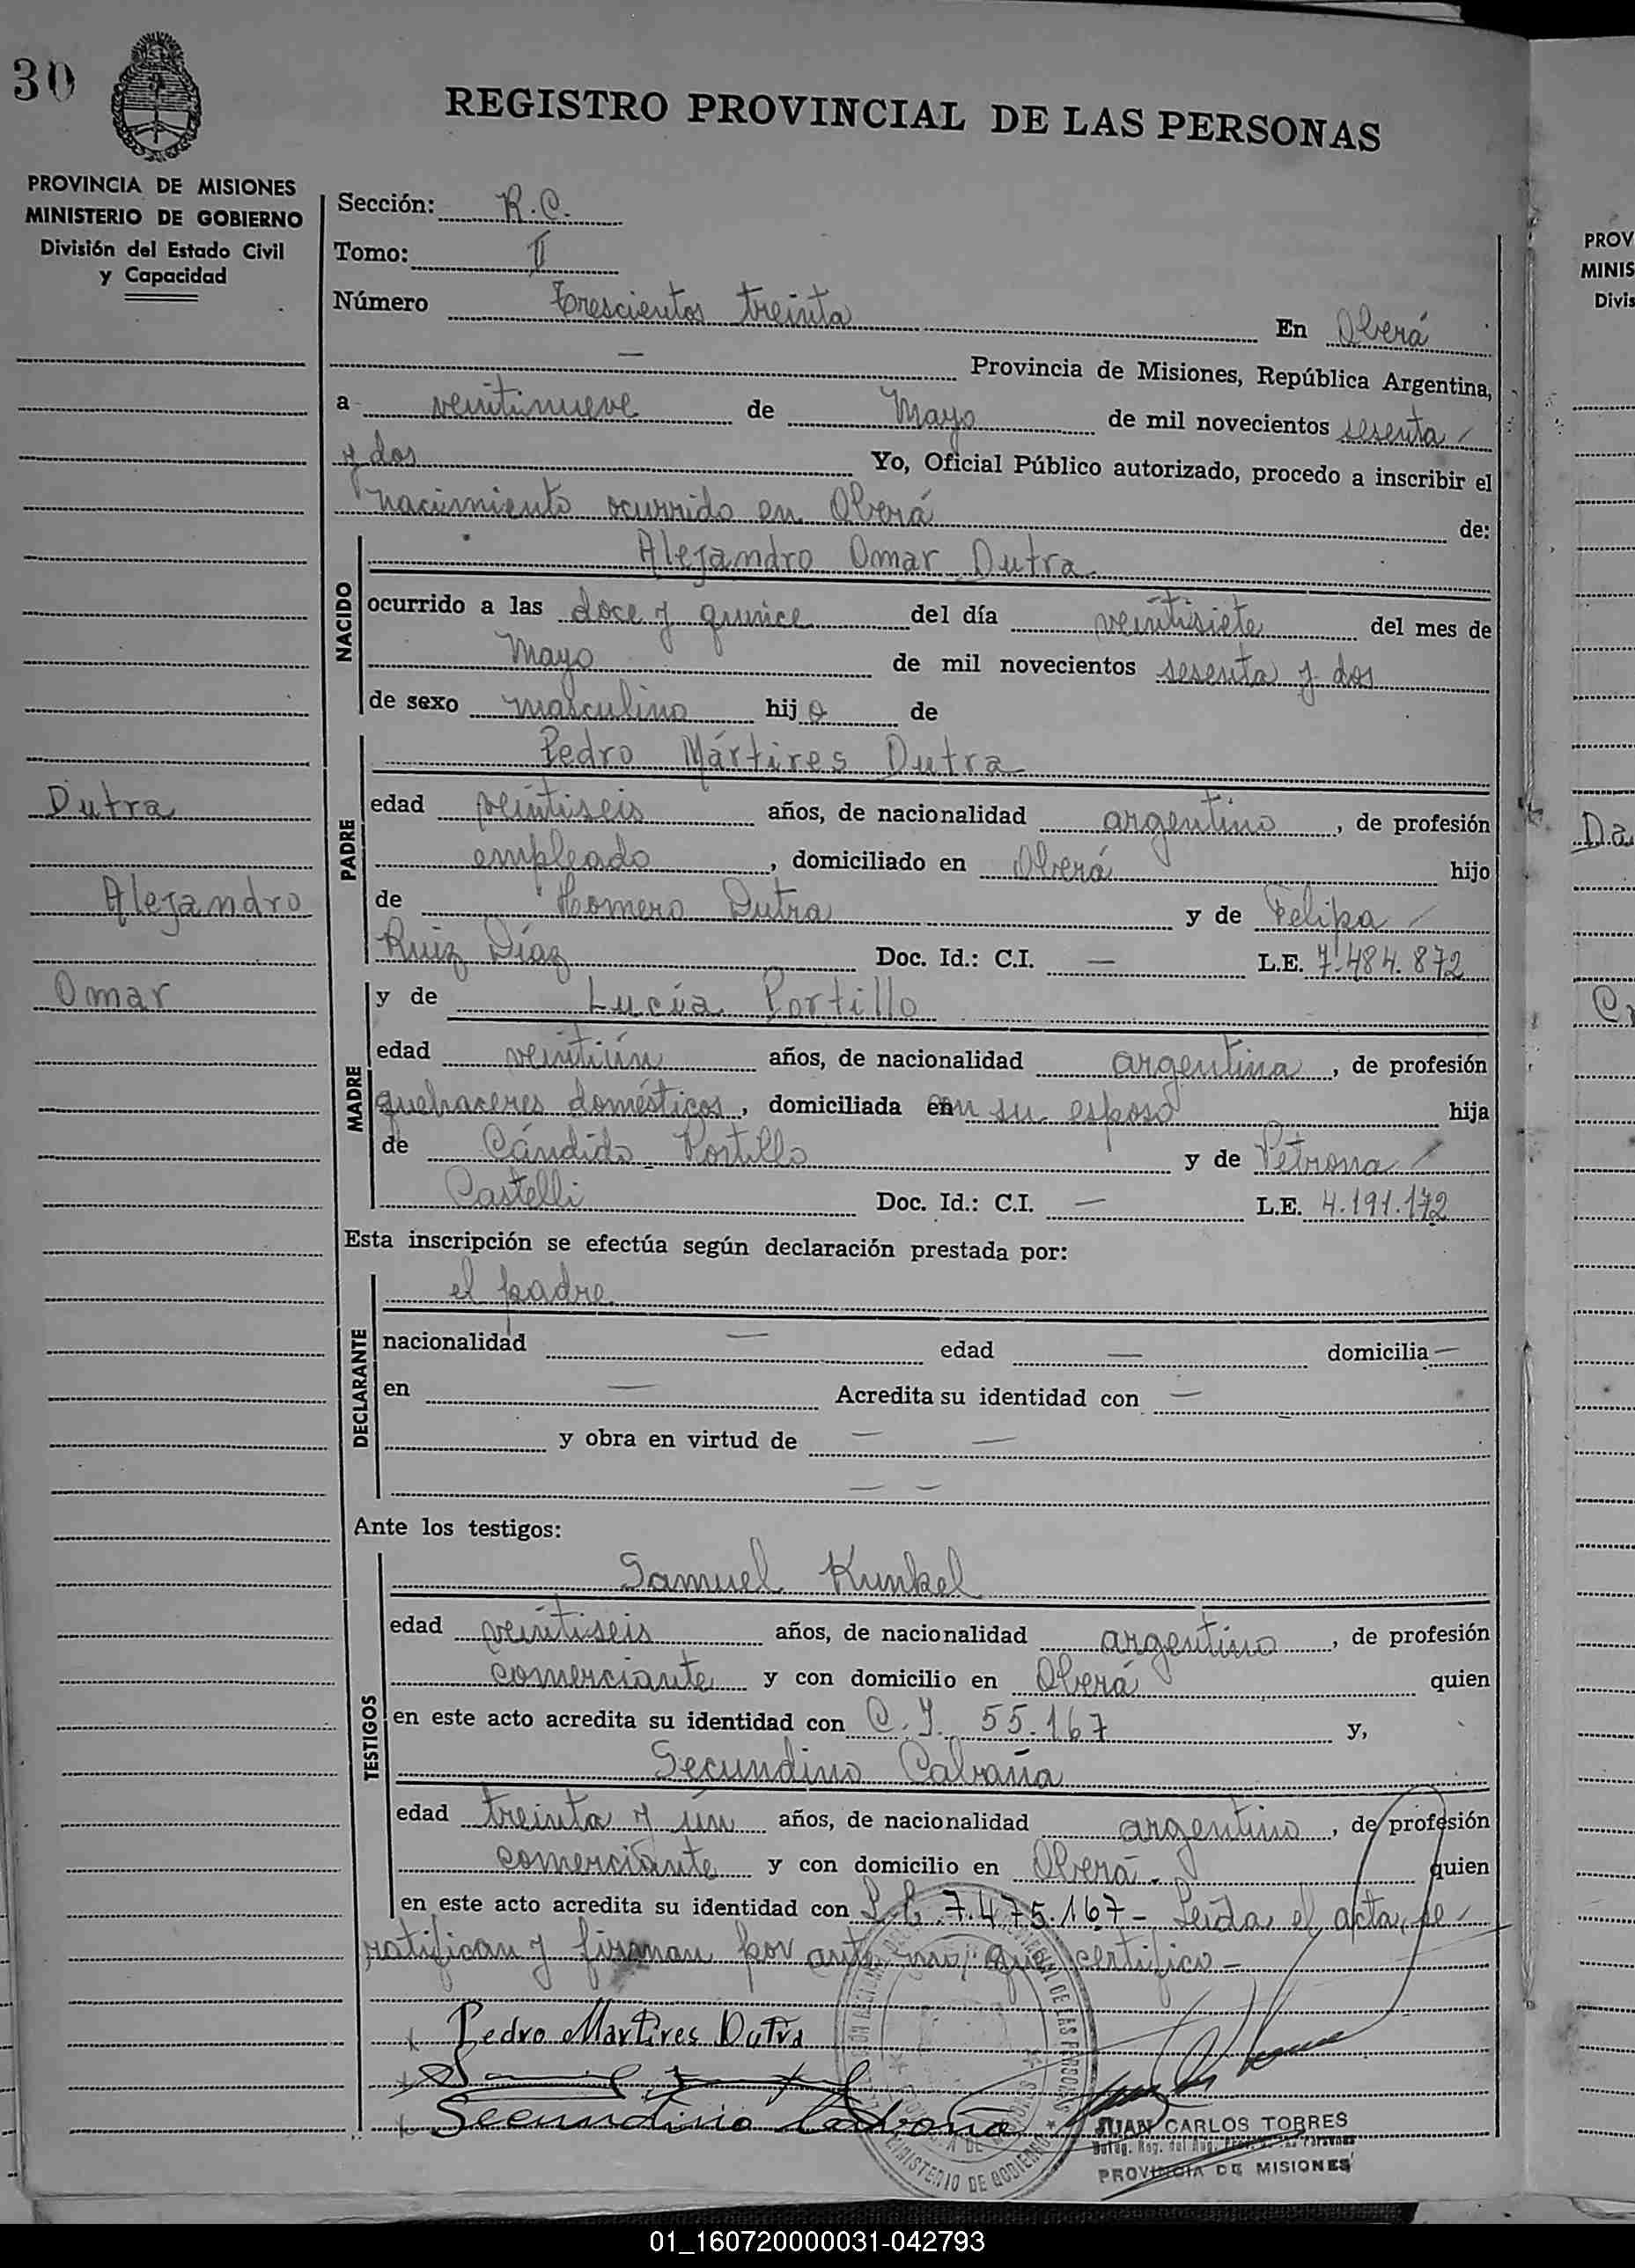 30
REGISTRO PROVINCIAL DE LAS PERSONAS
PROVINCIA DE MISIONES
MINISTERIO DE GOBIERNO
División del Estado Civil
y Capacidad
Sección: R.C.
Tomo: II
Número Trescientos treinta En Oberá
— Provincia de Misiones, República Argentina,
a veintinueve de Mayo de mil novecientos sesenta
y dos Yo, Oficial Público autorizado, procedo a inscribir el
nacimiento ocurrido en Oberá de:
NACIDO
Alejandro Omar Dutra
ocurrido a las doce y quince del día veintisiete del mes de
Mayo de mil novecientos sesenta y dos
de sexo masculino hijo de
PADRE
Pedro Mártires Dutra
edad veintiseis años, de nacionalidad argentino, de profesión
empleado, domiciliado en Oberá hijo
de Homero Dutra y de Felipa
Ruiz Díaz Doc. Id.: C.I. — L.E. 7.484.872
MADRE
y de Lucía Portillo
edad veintiún años, de nacionalidad argentina, de profesión
quehaceres domésticos, domiciliada en su esposo hija
de Cándido Portillo y de Petrona
Castelli Doc. Id.: C.I. — L.E. 4.191.172
Esta inscripción se efectúa según declaración prestada por:
DECLARANTE
el padre
nacionalidad — edad — domicilia —
en — Acredita su identidad con —
y obra en virtud de — —
— —
Ante los testigos:
TESTIGOS
Samuel Kunkel
edad veintiseis años, de nacionalidad argentino, de profesión
comerciante y con domicilio en Oberá quien
en este acto acredita su identidad con C.I. 55.167 y,
Secundino Cabaña
edad treinta y ún años, de nacionalidad argentino, de profesión
comerciante y con domicilio en Oberá. quien
en este acto acredita su identidad con L.E. 7.475.167- Leída el acta, se
ratifican y firman por ante mi, que certifico -
Pedro Martires Dutra
Secundino Cabaña
JUAN CARLOS TORRES
PROVINCIA DE MISIONES
MINISTERIO DE GOBIERNO
Dutra
Alejandro
Omar
PROV
MINIS
Divis
Da
01_160720000031-042793